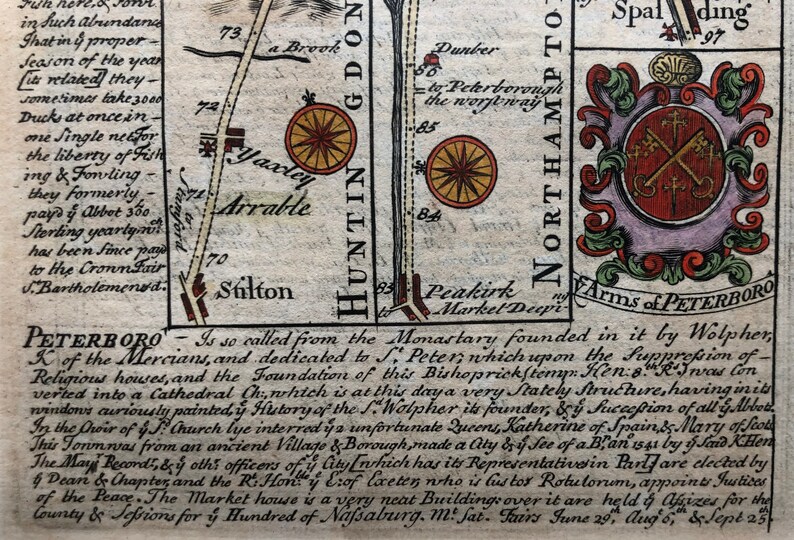 Fish here, & Fowl
in such abundance
that in ye proper
season of the year
[its related] they
sometimes take 3000
Ducks at once in
one single nee For
the liberty of Fish
ing & Fowling
they formerly
payd ye Abbot 360
Sterling yearly wch
has been since payd
to the Crown Fair
St. Bartholemews d.
73
a Brook
72
Yaxley
71
to Stanford
Arrable
70
Stilton
HUNTINGDON
Dunber
86
to Peterborough
the worst way
85
84
83
to
Peakirk
Market Deeping
NORTHAMPTO
Spalding
97
ye Arms of PETERBORO'
PETERBORO' Is so called from the Monastary founded in it by Wolpher,
K of the Mercians, and dedicated to St. Peter, which upon the Suppression of
Religious houses, and the Foundation of this Bishoprick [temp: Hen: 8th Rs] was Con
verted into a Cathedral Ch:, which is at this day a very Stately Structure, having in its
windows curiously painted, ye History of the Sd. Wolpher its founder, & ye Succession of all ye Abbots.
In the Choir of ys Church lye interred ye 2 unfortunate Queens, Katherine of Spain, & Mary of Scots
This Town was from an ancient Village & Borough, made a City & ye See of a Bp. ano 1541 by ye said K Hen
The Mayr. Recordr, & ye othr officers of ye City [which has its Representatives in Parlt] are elected by
ye Dean & Chapter, and the Rt. Honble ye E: of Exeter, who is Custos Rotulorum, appoints Justices
of the Peace. The Market house is a very neat Building: over it are held ye Assizes for the
County & Sessions for ye Hundred of Nassaburg. Mt. Sat. Fairs June 29th, Augt 6th, & Sept 25th